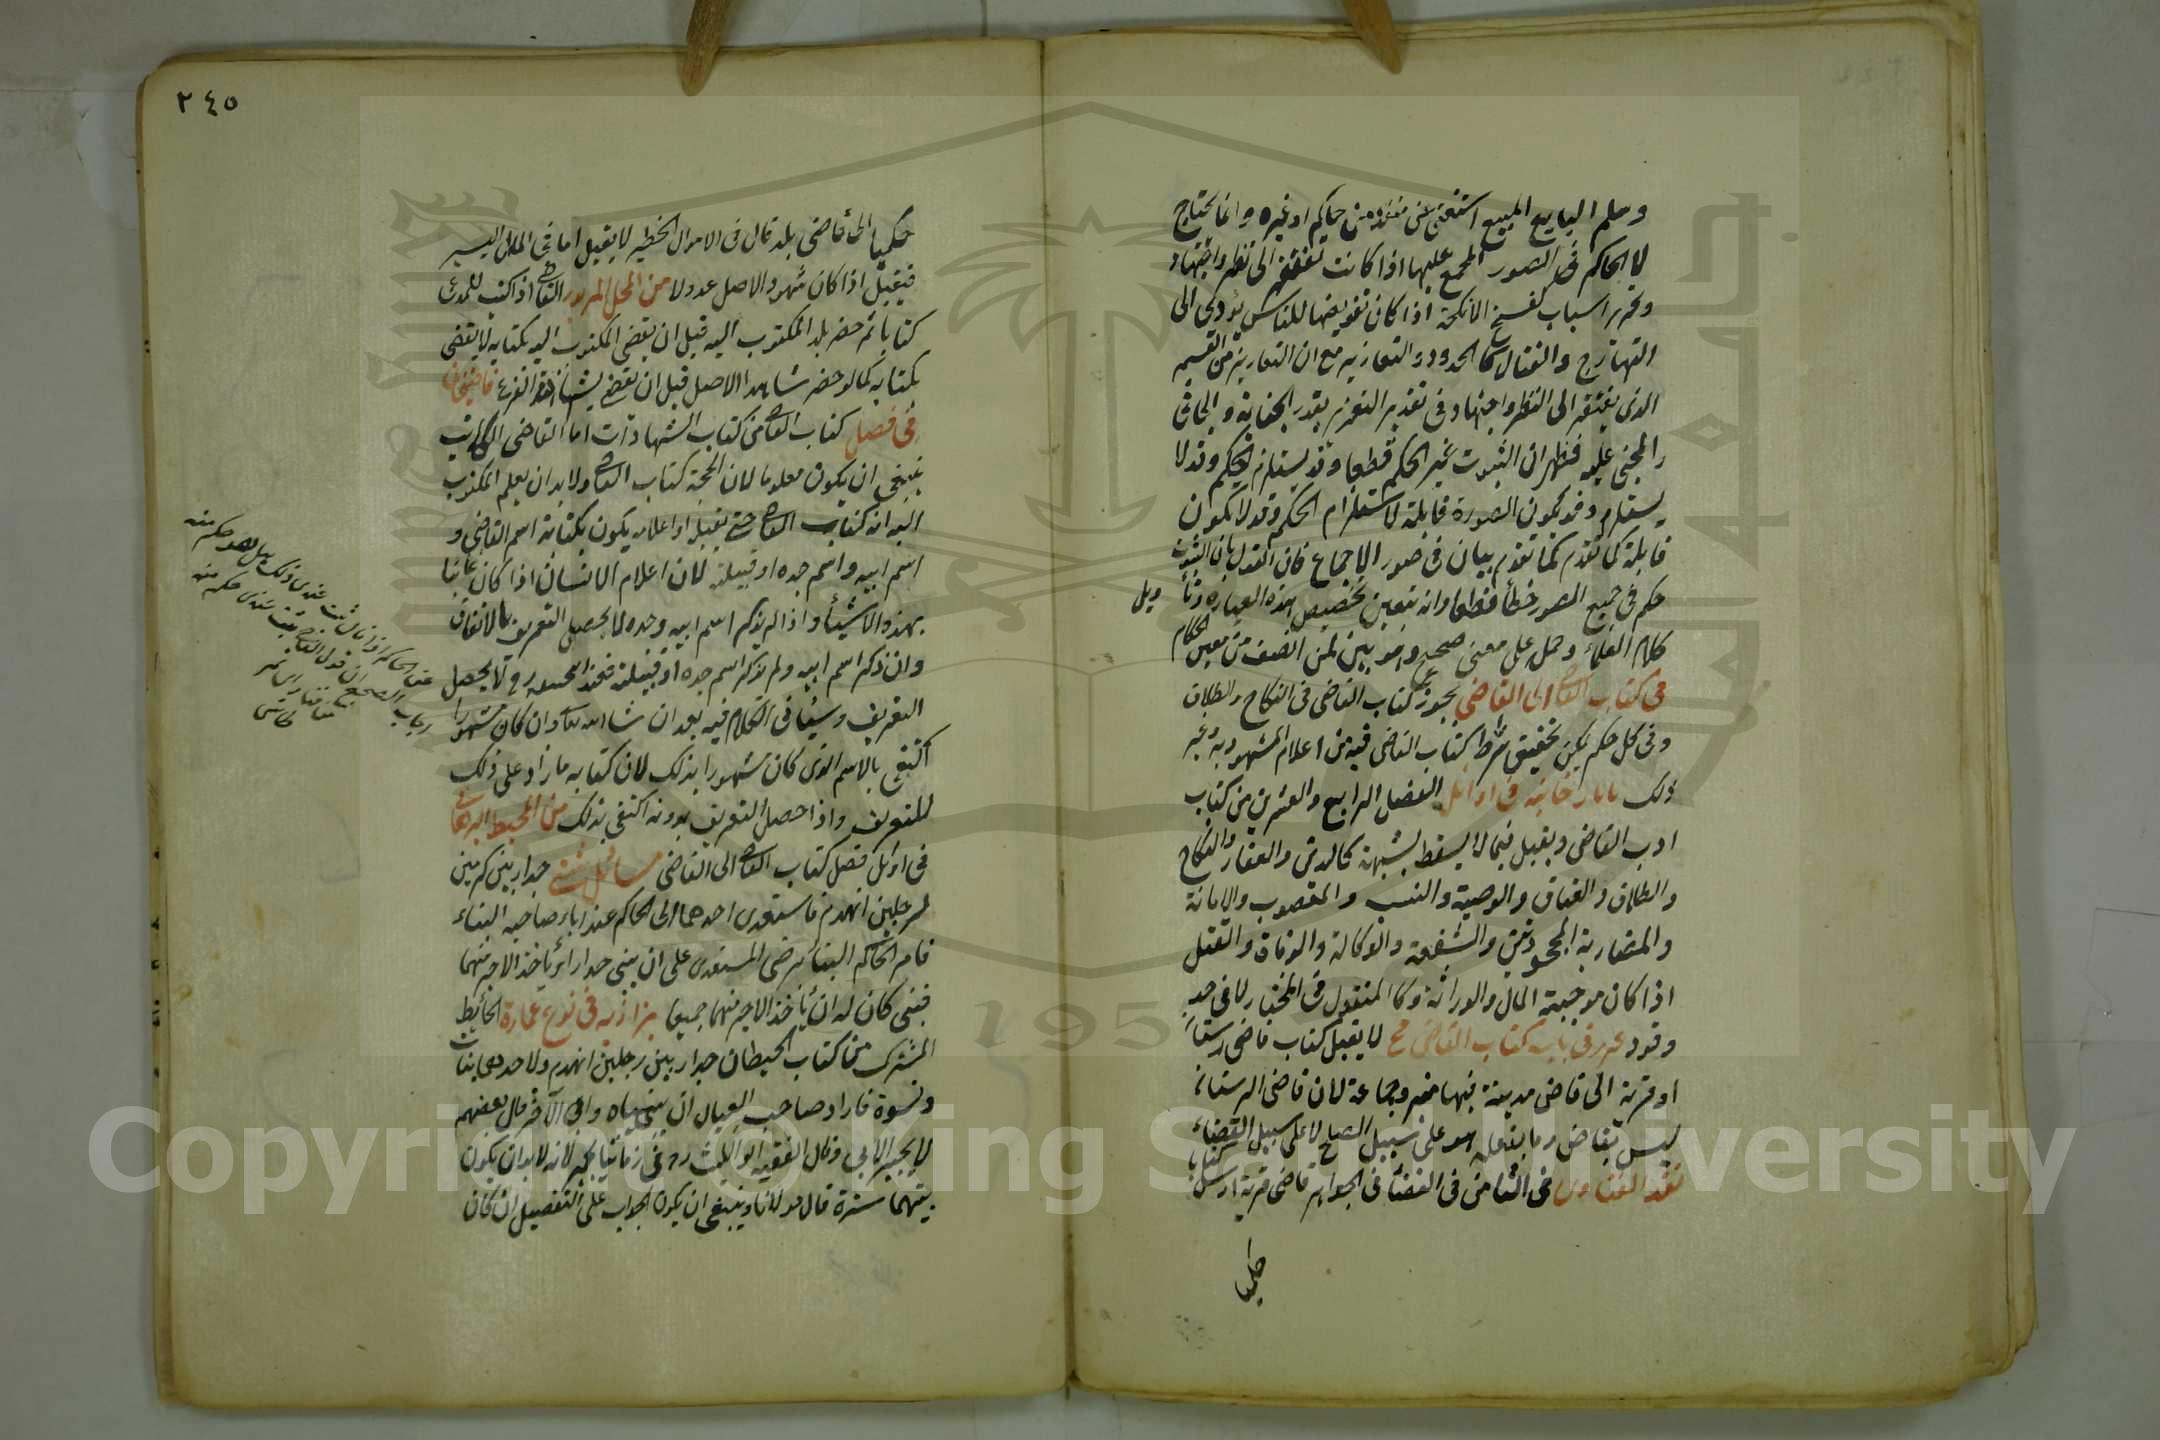 وسلم البايع المبيع استغنى عن منفذ من حاكم او غيره وانما يحتاج
الى الحاكم في الصور المجمع عليها اذا كانت تفتقر الى نظر واجتهاد
وتحرير اسباب كفسخ الانكحة اذا كان تفويضها للناس يؤدي الى
التهارج والقتال كالحدود والتعازير مع ان التعازير من القسم
الذي يفتقر الى النظر واجتهاد في تقدير التعزير بقدر الجناية والجاني
والمجني عليه فظهر ان الثبوت غير الحكم قطعا وقد يستلزم الحكم وقد لا
يستلزم وقد يكون الصورة قابلة لاستلزام الحكم وقد لا يكون
قابلة كما تقدم بيان في صور الاجماع فان القول بان الثبوت
حكم في جميع الصور خطأ قطعا وانه يتعين تخصيص هذه العبارة
كلام العلماء وحمل على معنى صحيح وهو بين لمن انصف من معين الحكام
في كتاب القاضي الى القاضي يجوز كتاب القاضي في النكاح والطلاق
وفي كل حكم يمكن تحقيق شرط كتاب القاضي فيه من اعلام المشهود به وغير
ذلك تاتارخانيه في اوائل الفصل الرابع والعشرين من كتاب
ادب القاضي ويقبل فيما لا يسقط بشبهة كالدين والعقار والنكاح
والطلاق والعتاق والوصية والنسب والمغصوب والامانة
والمضاربة المجحودتين والشفعة والوكالة والوفاة والقتل
اذا كان موجبه المال والوراثة وكالمنقول في المختار لا في حد
وقود غرر في باب كتاب القاضي لا يقبل كتاب قاضي رستاق
او قرية الى قاضي مدينة فيها منبر وجماعة لان قاضي الرستاق
ليس بقاض وما يفعله هو على سبيل الصلح لا على سبيل القضاء
نقد الفتاوى في الثامن في القضاء في الجواهر قاضي قرية ارسل كتابا
حكميا الى قاضي بلد قال في الاموال الخطير لا يقبل اما في المال اليسير
فيقبل اذا كان شهود الاصل عدولا من المحل المزبور القاضي اذا كتب للمدعي
كتابا ثم حضر بلد المكتوب اليه قبل ان يقضي المكتوب اليه بكتابه لا يقضي
بكتابه كما لو حضر شاهدا الاصل قبل ان يقضي بشهادة الفرع قاضيخان
في فصل كتاب القاضي من كتاب الشهادات اما القاضي الكاتب
ينبغي ان يكون معلوما لان الحجة كتاب القاضي ولا بد ان يعلم المكتوب
اليه انه كتاب القاضي حتى يقبل واعلامه يكون بكتابة اسم القاضي و
اسم ابيه واسم جده او قبيلته لان اعلام الانسان اذا كان غائبا
بهذه الاشياء واذا لم يذكر اسم ابيه وجده لا يحصل التعريف بالاتفاق
وان ذكر اسم ابيه ولم يذكر اسم جده او قبيلته فعند ابي حنيفة رح لا يحصل
التعريف وسيأتي الكلام فيه بعد ان شاء الله تعالى وان كان مشهورا
اكتفى بالاسم الذي كان مشهورا بذلك لان كتابه ما زاد على ذلك
للتعريف واذا حصل التعريف بدونه اكتفي بذلك من المحيط البرهاني
في اوائل فصل كتاب القاضي الى القاضي مسائل شتى جدار بين كرمين
لرجلين انهدم فاستعدى احدهما الى الحاكم عند اباء صاحبه البناء
فامر الحاكم البناء برضى المستعدي على ان يبني جدارا يأخذ الاجر منهما
فبنى كان له ان يأخذ الاجر منهما جميعا بزازيه في نوع عمارة الحائط
المشترك من كتاب الحيطان جدار بين رجلين انهدم ولاحدهما بنات
ونسوة فاراد صاحب العيال ان يبنياه وابى الآخر قال بعضهم
لا يجبر الآبي وقال الفقيه ابو الليث رح في زماننا يجبر لانه لا بد ان يكون
بينهما سترة قال مولانا وينبغي ان يكون الجواب على التفصيل ان كان
٢٤٥